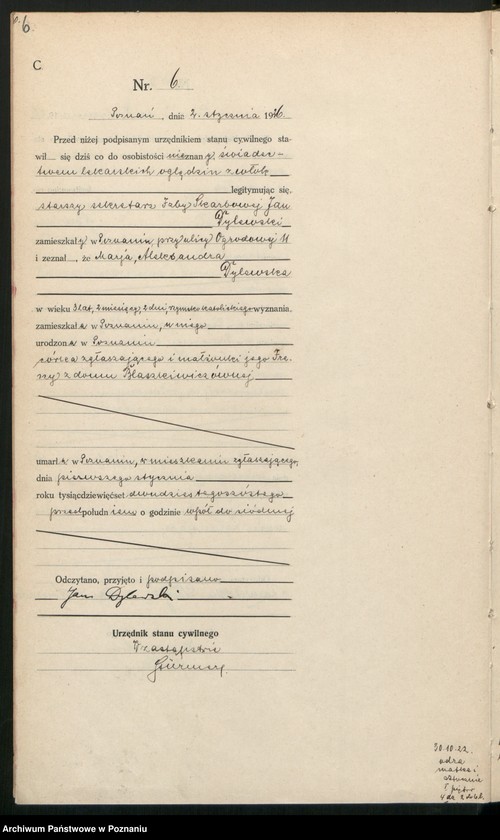 6.
C
Nr. 6
Poznań, dnia 2. stycznia 1926.
Przed niżej podpisanym urzędnikiem stanu cywilnego sta-
wił się dziś co do osobistości nieznany, świadec-
twem lekarskich oględzin zwłok
legitymując się,
starszy sekretarz Izby Skarbowej Jan
Dylewski
zamieszkały w Poznaniu przy ulicy Ogrodowej 11
i zeznał, że Marja, Aleksandra
Dylewska
w wieku 3 lat, 2 miesięcy, 2 dni, rzymsko katolickiego wyznania,
zamieszkała w Poznaniu, u niego
urodzona w Poznaniu
córka zgłaszającego i małżonki jego Ire-
ny z domu Błaszkiewiczównej
umarła w Poznaniu, w mieszkaniu zgłaszającego,
dnia pierwszego stycznia
roku tysiącdziewięćset dwudziestegoszóstego
przedpołudniem o godzinie wpół do siódmej
Odczytano, przyjęto i podpisano
Jan Dylewski
Urzędnik stanu cywilnego
W zastępstwie
30.10.22.
odra
matka i
1 piętro
Archiwum Państwowe w Poznaniu